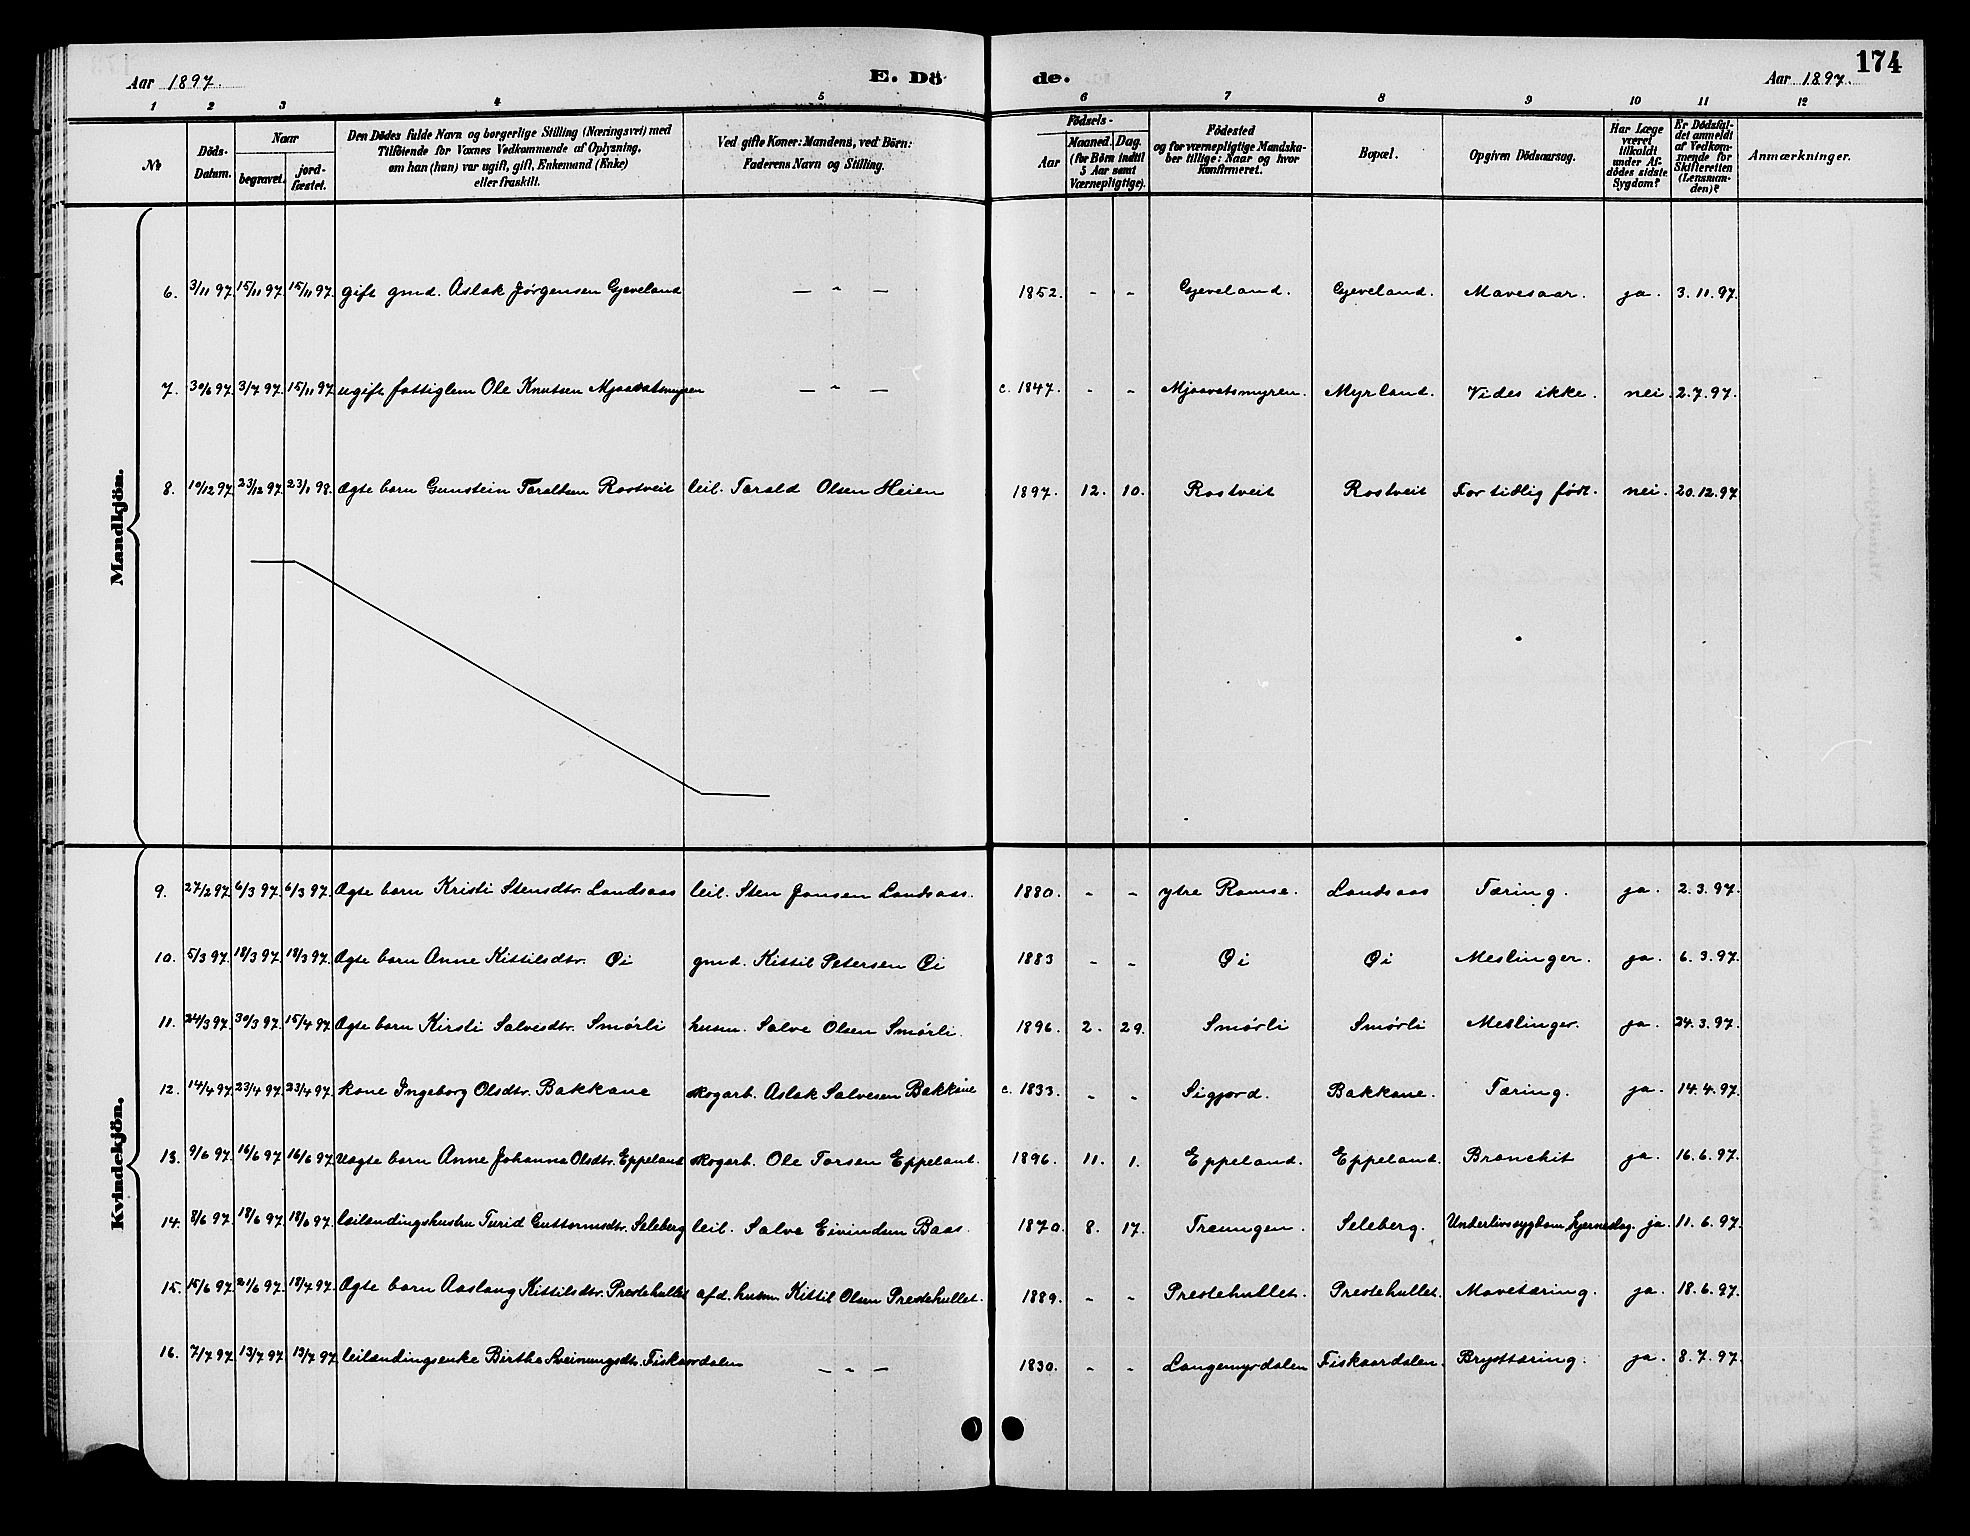 174
Aar 1897.
E. Dö
de.
Aar 1897.
1 2 3 4 5 6 7 8 9 10 11 12
№
Döds-
Datum.
Naar
begravet.
jord-
fæstet.
Den Dödes fulde Navn og borgerlige Stilling (Næringsvei) med
Tilföiende for Voxnes Vedkommende af Oplysning,
om han (hun) var ugift, gift, Enkemand (Enke)
eller fraskilt.
Ved gifte Koner: Mandens, ved Börn:
Faderens Navn og Stilling.
Födsels-
Aar
Maaned. Dag.
(for Börn indtil
5 Aar samt
Værnepligtige).
Födested
og for værnepligtige Mandska-
ber tillige: Naar og hvor
konfirmeret.
Bopæl.
Opgiven Dödsaarsag.
Har Læge
været
tilkaldt
under Af-
dödes sidste
Sygdom?
Er Dödsfal-
det anmeldt
af Vedkom-
mende for
Skifteretten
(Lensman-
den)?
Anmærkninger.
Mandkjön.
6. 3/11 97. 15/11 97. 15/11 97. gift gmd. Aslak Jørgensen Gjeveland — - — 1852. - - Gjeveland. Gjeveland. Mavesaar. ja. 3.11.97.
7. 30/6 97. 3/7 97. 15/11 97. ugift fattiglem Ole Knutsen Mjaavatsmyren — - — c. 1847. - - Mjaavatsmyren. Myrland. Vides ikke. nei. 2.7.97.
8. 10/12 97. 23/12 97. 23/1 98. Ægte barn Gunstein Taraldsen Rostveit leil. Tarald Olsen Heien 1897. 12. 10. Rostveit Rostveit For tidlig født. nei. 20.12.97
Kvindekjön.
9. 27/2 97. 6/3 97. 6/3 97. Ægte barn Kristi Stensdtr. Landsaas leil. Sten Jonsen Landsaas. 1880. - - ytre Ramse. Landsaas Tæring. ja. 2.3.97.
10. 5/3 97. 18/3 97. 18/3 97. Ægte barn Anne Kittilsdtr. Øi gmd. Kittil Petersen Øi 1883 - - Øi Øi Meslinger. ja. 6.3.97.
11. 24/3 97. 30/3 97. 15/4 97. Ægte barn Kirsti Salvesdtr. Smørli husm. Salve Olsen Smørli. 1896. 2. 29. Smørli Smørli Meslinger. ja. 24.3.97.
12. 14/4 97. 23/4 97. 23/4 97. kone Ingeborg Olsdtr. Bakkane skogarb. Aslak Salvesen Bakkane c. 1833. - - Sigjord. Bakkane. Tæring. ja. 14.4.97.
13. 9/6 97. 16/6 97. 16/6 97. Uægte barn Anne Johanna Olsdtr. Eppeland skogarb. Ole Torsen Eppeland. 1896. 11. 1. Eppeland. Eppeland. Bronchit ja. 16.6.97.
14. 8/6 97. 18/6 97. 18/6 97. leilændingshustru Turid Guttormsdtr. Seleberg leil. Salve Eivindsen Baas. 1870. 8. 17. Treungen. Seleberg. Underlivssygdom, hjerneslag. ja. 11.6.97.
15. 15/6 97. 21/6 97. 18/7 97. Ægte barn Aaslaug Kittilsdtr. Prestehullet afd. husm. Kittil Olsen Prestehullet. 1889. - - Prestehullet. Prestehullet. Mavetæring. ja. 18.6.97.
16. 7/7 97. 13/7 97. 13/7 97. leilændingsenke Birthe Sveinungsdtr. Fiskaardalen — - — 1830. - - Langemyrdalen Fiskaardalen. Brysttæring. ja. 8.7.97.